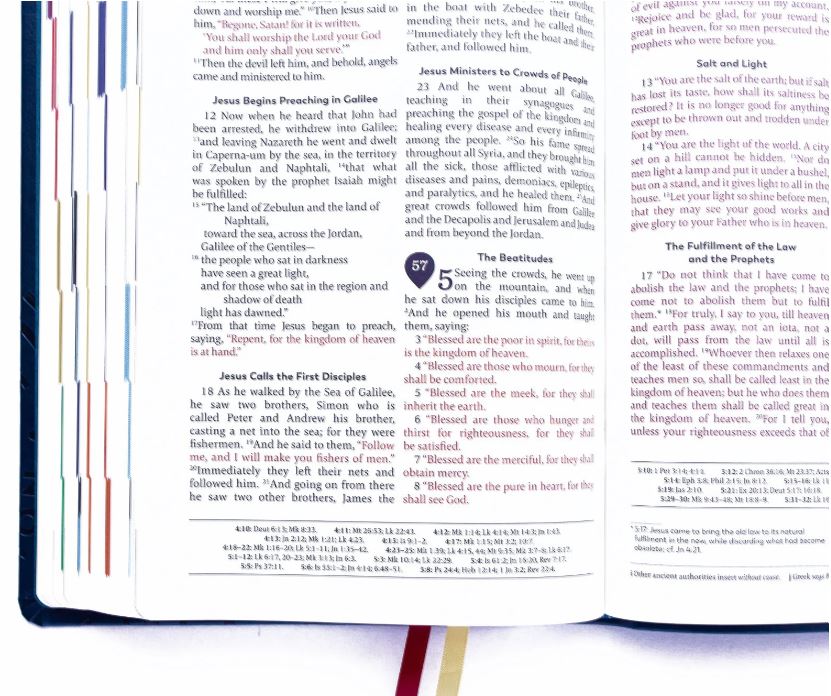 down and worship me." ¹⁰Then Jesus said to
him, "Begone, Satan! for it is written,
'You shall worship the Lord your God
and him only shall you serve.'"
¹¹Then the devil left him, and behold, angels
came and ministered to him.
Jesus Begins Preaching in Galilee
12 Now when he heard that John had
been arrested, he withdrew into Galilee;
¹³and leaving Nazareth he went and dwelt
in Caperna-um by the sea, in the territory
of Zebulun and Naphtali, ¹⁴that what
was spoken by the prophet Isaiah might
be fulfilled:
¹⁵ "The land of Zebulun and the land of
Naphtali,
toward the sea, across the Jordan,
Galilee of the Gentiles—
¹⁶ the people who sat in darkness
have seen a great light,
and for those who sat in the region and
shadow of death
light has dawned."
¹⁷From that time Jesus began to preach,
saying, "Repent, for the kingdom of heaven
is at hand."
Jesus Calls the First Disciples
18 As he walked by the Sea of Galilee,
he saw two brothers, Simon who is
called Peter and Andrew his brother,
casting a net into the sea; for they were
fishermen. ¹⁹And he said to them, "Follow
me, and I will make you fishers of men."
²⁰Immediately they left their nets and
followed him. ²¹And going on from there
he saw two other brothers, James the
in the boat with Zebedee their father,
mending their nets, and he called them.
²²Immediately they left the boat and their
father, and followed him.
Jesus Ministers to Crowds of People
23 And he went about all Galilee,
teaching in their synagogues and
preaching the gospel of the kingdom and
healing every disease and every infirmity
among the people. ²⁴So his fame spread
throughout all Syria, and they brought him
all the sick, those afflicted with various
diseases and pains, demoniacs, epileptics,
and paralytics, and he healed them. ²⁵And
great crowds followed him from Galilee
and the Decapolis and Jerusalem and Judea
and from beyond the Jordan.
57
The Beatitudes
5 Seeing the crowds, he went up
on the mountain, and when
he sat down his disciples came to him.
²And he opened his mouth and taught
them, saying:
3 "Blessed are the poor in spirit, for theirs
is the kingdom of heaven.
4 "Blessed are those who mourn, for they
shall be comforted.
5 "Blessed are the meek, for they shall
inherit the earth.
6 "Blessed are those who hunger and
thirst for righteousness, for they shall
be satisfied.
7 "Blessed are the merciful, for they shall
obtain mercy.
8 "Blessed are the pure in heart, for they
shall see God.
4:10: Deut 6:13; Mk 8:33. 4:11: Mt 26:53; Lk 22:43. 4:12: Mk 1:14; Lk 4:14; Mt 14:3; Jn 1:43.
4:13: Jn 2:12; Mk 1:21; Lk 4:23. 4:15: Is 9:1–2. 4:17: Mk 1:15; Mt 3:2; 10:7.
4:18–22: Mk 1:16–20; Lk 5:1–11; Jn 1:35–42. 4:23–25: Mk 1:39; Lk 4:15, 44; Mt 9:35; Mk 3:7–8; Lk 6:17.
5:1–12: Lk 6:17, 20–23; Mk 3:13; Jn 6:3. 5:3: Mk 10:14; Lk 22:29. 5:4: Is 61:2; Jn 16:20; Rev 7:17.
5:5: Ps 37:11. 5:6: Is 55:1–2; Jn 4:14; 6:48–51. 5:8: Ps 24:4; Heb 12:14; 1 Jn 3:2; Rev 22:4.
of evil against you falsely on my account.
¹²Rejoice and be glad, for your reward is
great in heaven, for so men persecuted the
prophets who were before you.
Salt and Light
13 "You are the salt of the earth; but if salt
has lost its taste, how shall its saltiness be
restored? It is no longer good for anything
except to be thrown out and trodden under
foot by men.
14 "You are the light of the world. A city
set on a hill cannot be hidden. ¹⁵Nor do
men light a lamp and put it under a bushel,
but on a stand, and it gives light to all in the
house. ¹⁶Let your light so shine before men,
that they may see your good works and
give glory to your Father who is in heaven.
The Fulfillment of the Law
and the Prophets
17 "Do not think that I have come to
abolish the law and the prophets; I have
come not to abolish them but to fulfil
them.* ¹⁸For truly, I say to you, till heaven
and earth pass away, not an iota, not a
dot, will pass from the law until all is
accomplished. ¹⁹Whoever then relaxes one
of the least of these commandments and
teaches men so, shall be called least in the
kingdom of heaven; but he who does them
and teaches them shall be called great in
the kingdom of heaven. ²⁰For I tell you,
unless your righteousness exceeds that of
5:10: 1 Pet 3:14; 4:14. 5:12: 2 Chron 36:16; Mt 23:37; Acts
5:14: Eph 5:8; Phil 2:15; Jn 8:12. 5:15–16: Lk 11
5:19: Jas 2:10. 5:21: Ex 20:13; Deut 5:17; 16:18.
5:29–30: Mk 9:43–48; Mt 18:8–9. 5:31–32: Lk 16
* 5:17: Jesus came to bring the old law to its natural
fulfilment in the new, while discarding what had become
obsolete; cf. Jn 4:21.
Other ancient authorities insert without cause. j Greek says